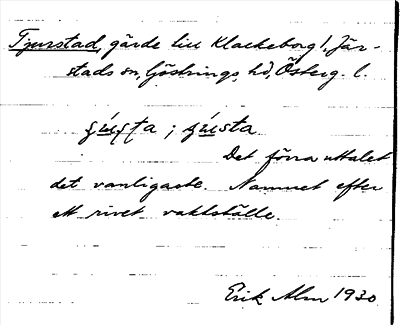 Tjurstad, gärde till Klackeborg, Jär-
stads sn, Göstrings hd, Österg. l.
Det förra uttalet
det vanligaste. Namnet efter
ett rivet vaktställe.
Erik Alm 1930